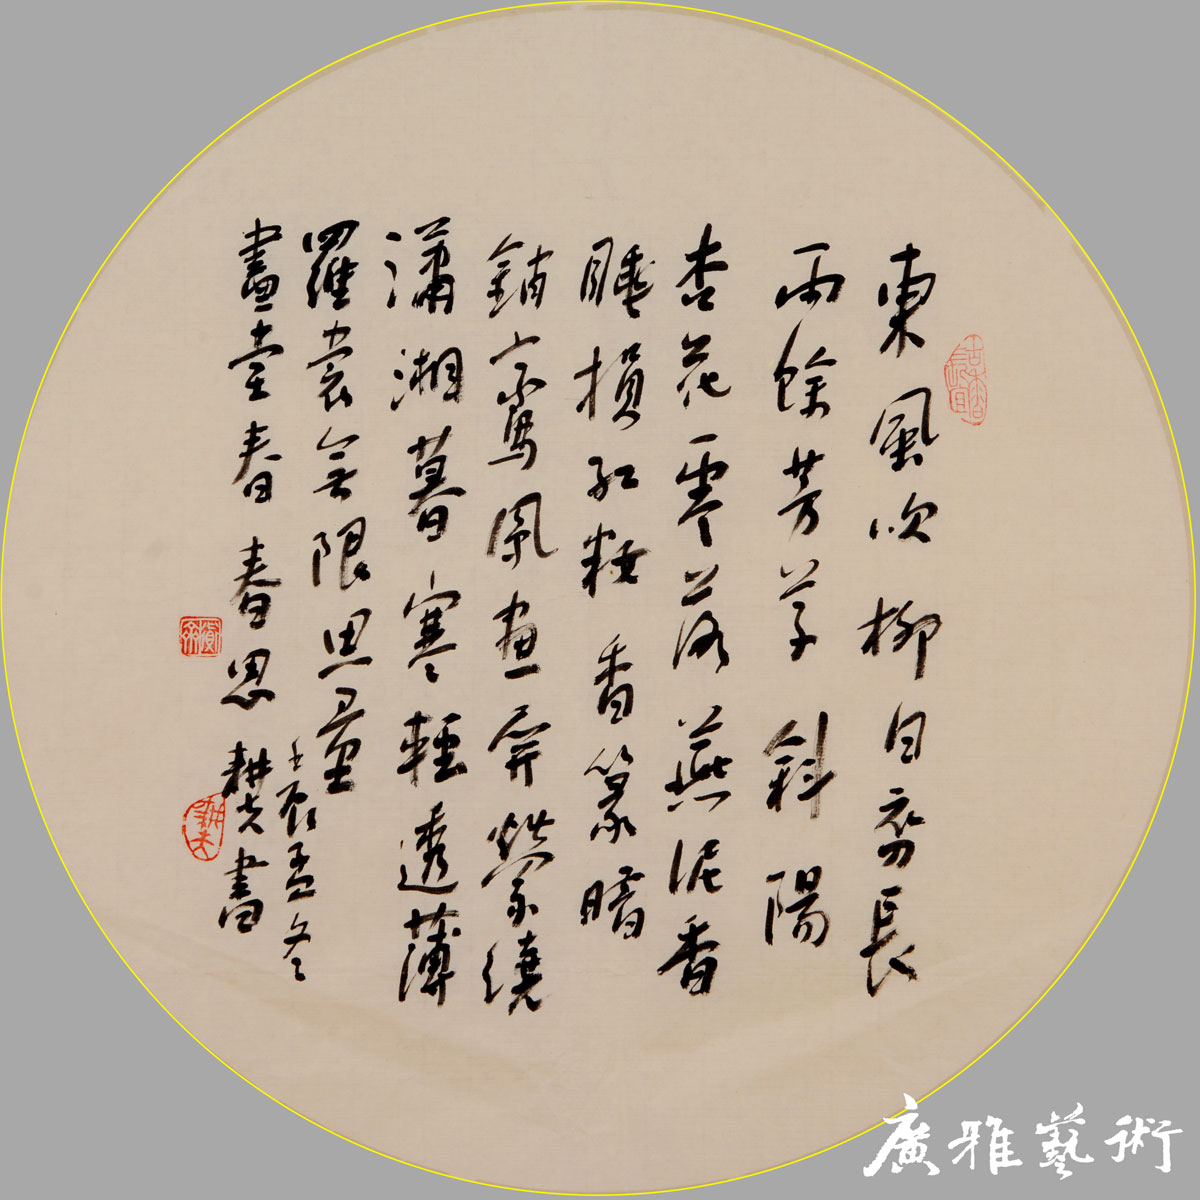 東風吹柳日初長
雨餘芳草斜陽
杏花零落燕泥香
睡損紅粧香篆暗
銷鸞鳳畫屏縈繞
瀟湘暮寒輕透薄
羅裳無限思量
畫堂春春思
壬辰孟冬
耕夫書
廣雅藝術